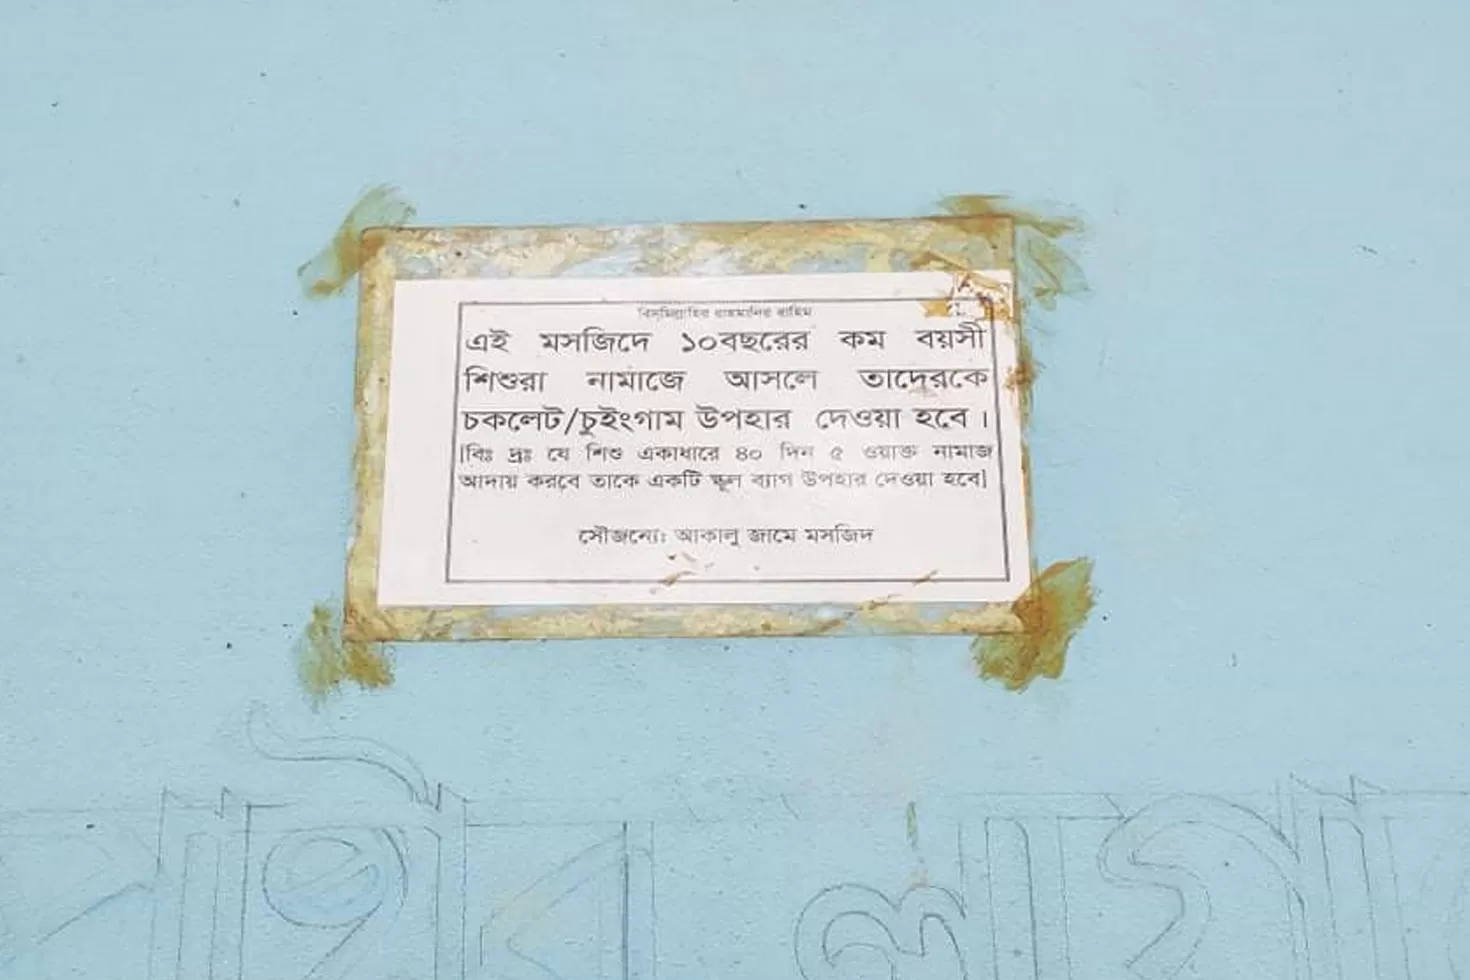 বিসমিল্লাহির রাহমানির রাহিম
এই মসজিদে ১০বছরের কম বয়সী
শিশুরা নামাজে আসলে তাদেরকে
চকলেট/চুইংগাম উপহার দেওয়া হবে।
[বিঃ দ্রঃ যে শিশু একাধারে ৪০ দিন ৫ ওয়াক্ত নামাজ
আদায় করবে তাকে একটি স্কুল ব্যাগ উপহার দেওয়া হবে]
সৌজন্যে: আকালু জামে মসজিদ